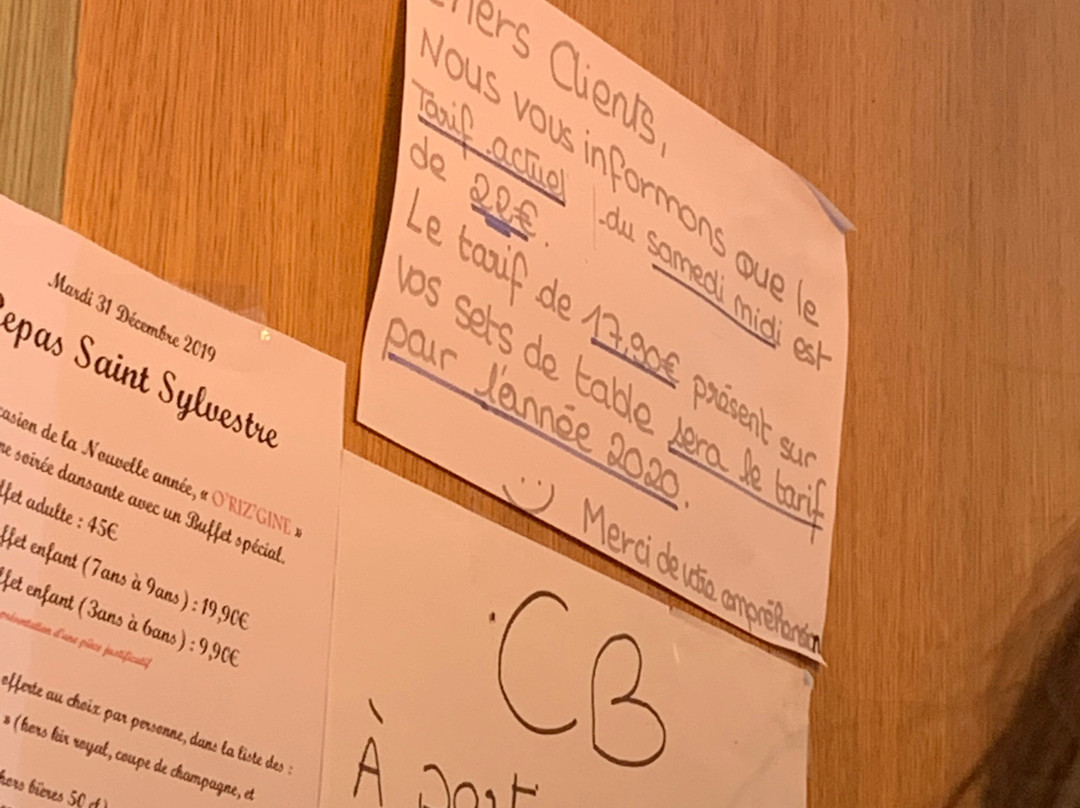 Chers Clients,
Nous vous informons que le
Tarif actuel du samedi midi est
de 22€.
Le tarif de 17,90€ présent sur
vos sets de table sera le tarif
pour l'année 2020.
Merci de votre compréhension
Mardi 31 Décembre 2019
Repas Saint Sylvestre
casion de la Nouvelle année, « O'RIZ'GINE »
ne soirée dansante avec un Buffet spécial.
ffet adulte : 45€
ffet enfant (7ans à 9ans) : 19,90€
ffet enfant (3ans à 6ans) : 9,90€
présentation d'une pièce justificatif
offerte au choix par personne, dans la liste des :
» (hors kir royal, coupe de champagne, et
hors bières 50 cl)
CB
À